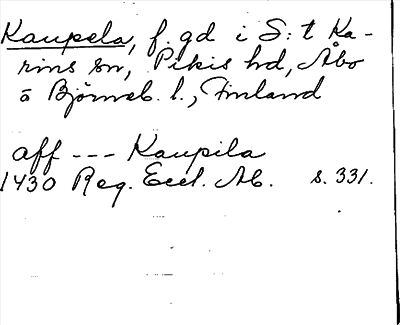 Kaupela, f. gd i S:t Ka-
rins sn, Pikis hd, Åbo
o Björneb. l., Finland
aff --- Kaupila
1430 Reg. Eccl. Ab. s. 331.